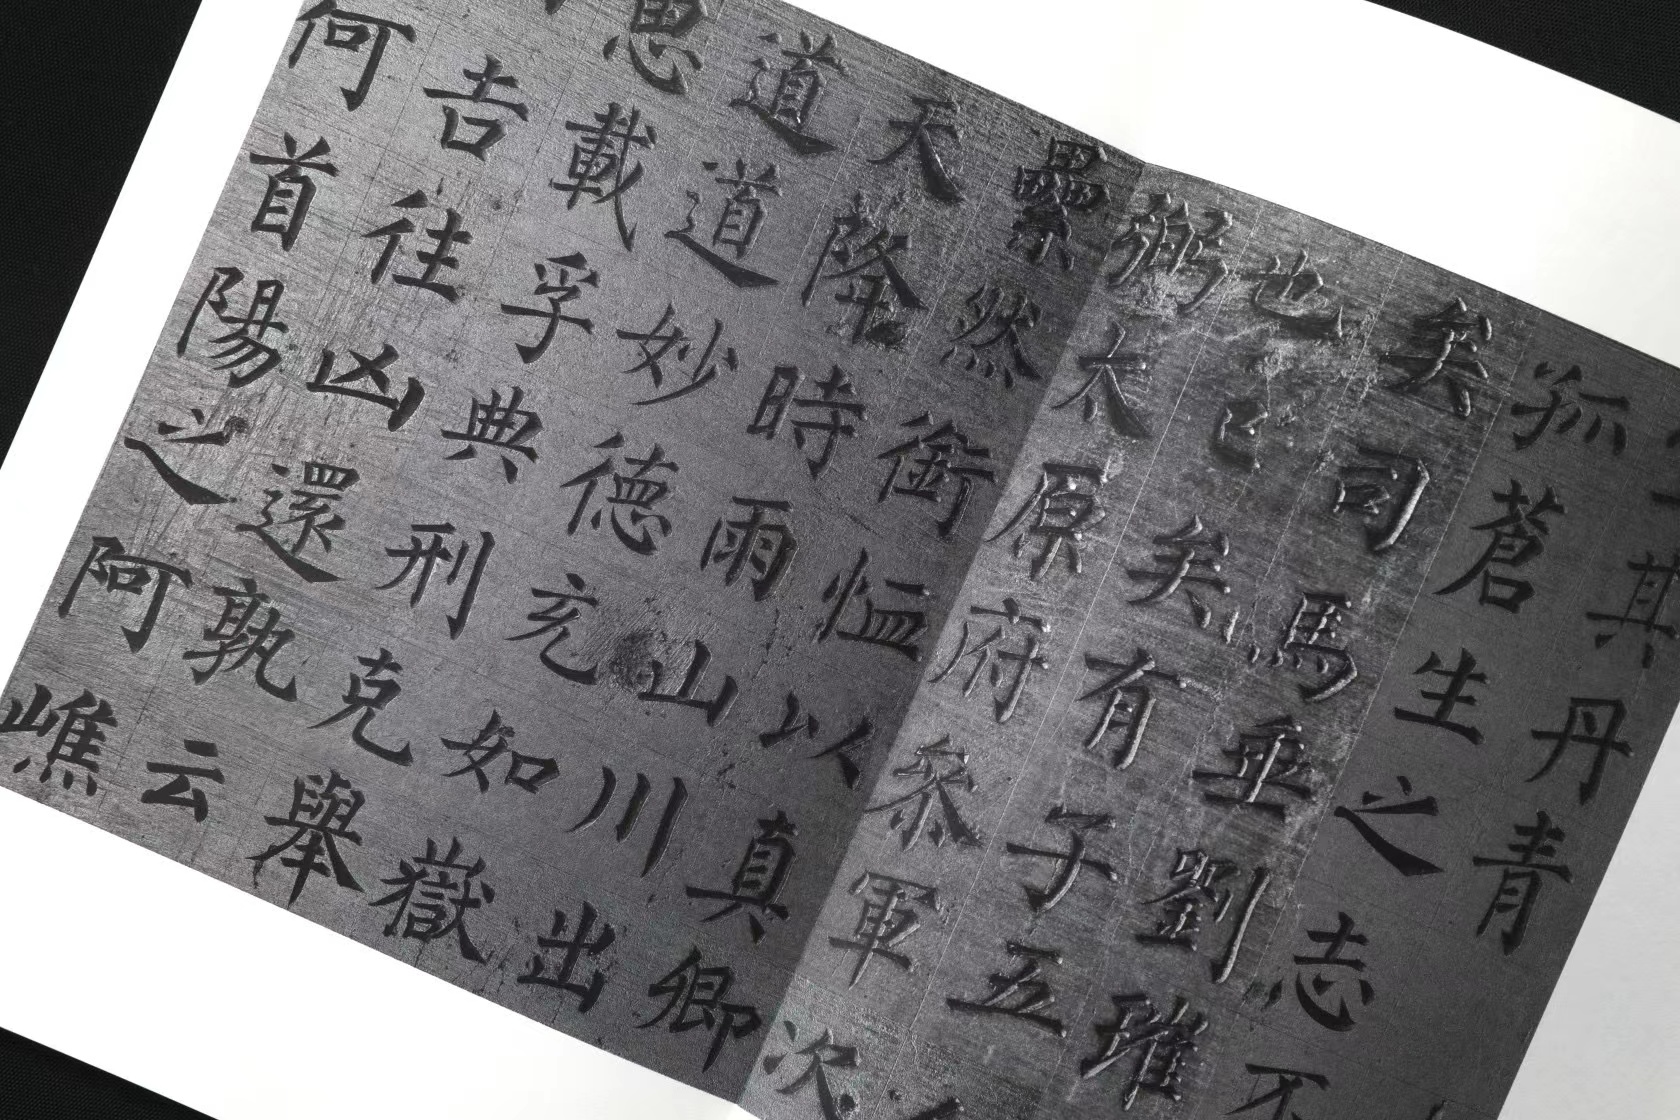 其丹青
孤蒼生之志不
矣司馬垂劉璀
也已矣有子五
弼太原府參軍次
纍然銜恤以真卿
天降時雨山川出
道道妙德充如嶽
思載孚典刑克舉
吉往凶還孰云
何首陽之阿嶕